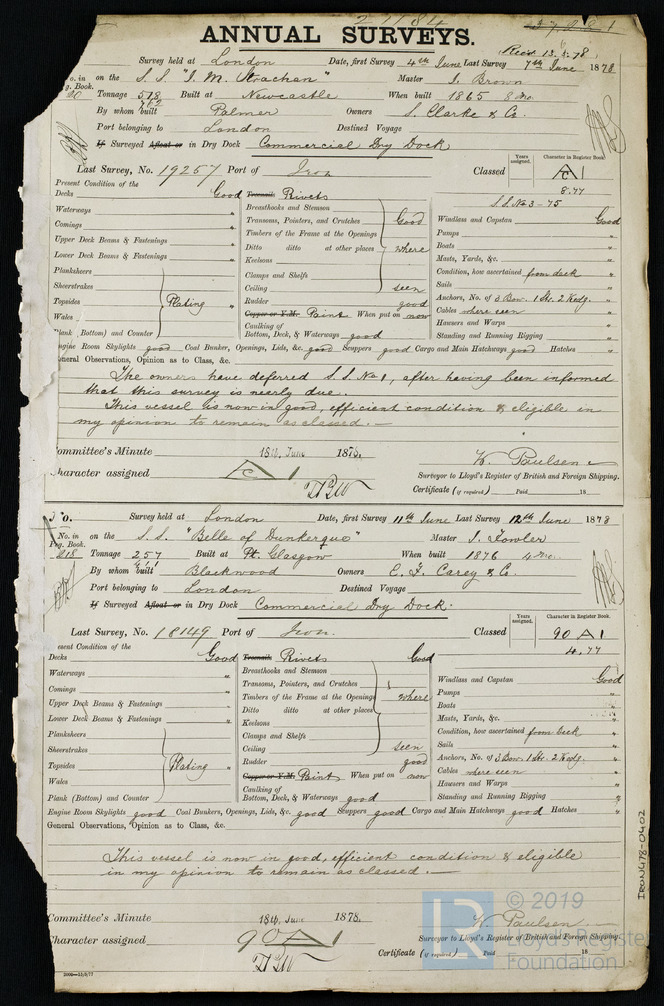 21184
ANNUAL SURVEYS.
Rec'd 13.6.78
Survey held at London Date, first Survey 4th June Last Survey 7th June 1878
No. in Reg. Book. on the S.S. "J. M. Strachan" Master J. Brown
Tonnage 578 762 Built at Newcastle When built 1865 8 mo.
By whom built Palmer Owners S. Clarke & Co.
Port belonging to London Destined Voyage
If Surveyed Afloat or in Dry Dock Commercial Dry Dock
Last Survey, No. 19257 Port of Iron Classed
Years assigned. Character in Register Book.
A 1
8.77
S.S. No 3-75
Present Condition of the
Decks Good
Waterways "
Comings "
Upper Deck Beams & Fastenings "
Lower Deck Beams & Fastenings "
Planksheers
Sheerstrakes
Topsides Plating "
Wales
Plank (Bottom) and Counter
Treenails Rivets
Breasthooks and Stemson
Transoms, Pointers, and Crutches Good
Timbers of the Frame at the Openings
Ditto ditto at other places where
Keelsons
Clamps and Shelfs
Ceiling seen
Rudder good
Copper or Y.M. Paint When put on now
Caulking of
Bottom, Deck, & Waterways good
Windlass and Capstan Good
Pumps "
Boats "
Masts, Yards, &c. "
Condition, how ascertained from deck "
Sails "
Anchors, No. of 3 Bow. 1 Str. 2 Kedg. "
Cables where seen "
Hawsers and Warps "
Standing and Running Rigging "
Engine Room Skylights good Coal Bunker, Openings, Lids, &c. good Scuppers good Cargo and Main Hatchways good Hatches "
General Observations, Opinion as to Class, &c.
The owners have deferred S.S. No 1, after having been informed
that this survey is nearly due.
This vessel is now in good, efficient condition & eligible in
my opinion to remain as classed.
Committee's Minute 18th June 1878.
Character assigned A 1
W. Paulsen
Surveyor to Lloyd's Register of British and Foreign Shipping.
Certificate (if required) Paid 18
No. Survey held at London Date, first Survey 11th June Last Survey 12th June 1878
No. in Reg. Book. on the S.S. "Belle of Dunkerque" Master J. Fowler
218 Tonnage 257 Built at Pt. Glasgow When built 1876 4 mo.
By whom built Blackwood Owners E. F. Carey & Co.
Port belonging to London Destined Voyage
If Surveyed Afloat or in Dry Dock Commercial Dry Dock.
Last Survey, No. 18149 Port of Iron. Classed
Years assigned. Character in Register Book.
90 A 1
4.77
Present Condition of the
Decks Good
Waterways "
Comings "
Upper Deck Beams & Fastenings "
Lower Deck Beams & Fastenings "
Planksheers
Sheerstrakes
Topsides Plating "
Wales
Plank (Bottom) and Counter
Treenails Rivets Good
Breasthooks and Stemson
Transoms, Pointers, and Crutches
Timbers of the Frame at the Openings where
Ditto ditto at other places
Keelsons
Clamps and Shelfs
Ceiling seen
Rudder good
Copper or Y.M. Paint When put on now
Caulking of
Bottom, Deck, & Waterways good
Windlass and Capstan Good
Pumps "
Boats "
Masts, Yards, &c. "
Condition, how ascertained from deck "
Sails "
Anchors, No. of 3 Bow. 1 Str. 2 Kedg. "
Cables where seen "
Hawsers and Warps "
Standing and Running Rigging "
Engine Room Skylights good Coal Bunkers, Openings, Lids, &c. good Scuppers good Cargo and Main Hatchways good Hatches "
General Observations, Opinion as to Class, &c.
This vessel is now in good, efficient condition & eligible
in my opinion to remain as classed.
Committee's Minute 18th June 1878.
Character assigned 90 A 1
W. Paulsen
Surveyor to Lloyd's Register of British and Foreign Shipping.
Certificate (if required) Paid 18
IRON478-0402
LR © 2019
Lloyd's Register
Foundation